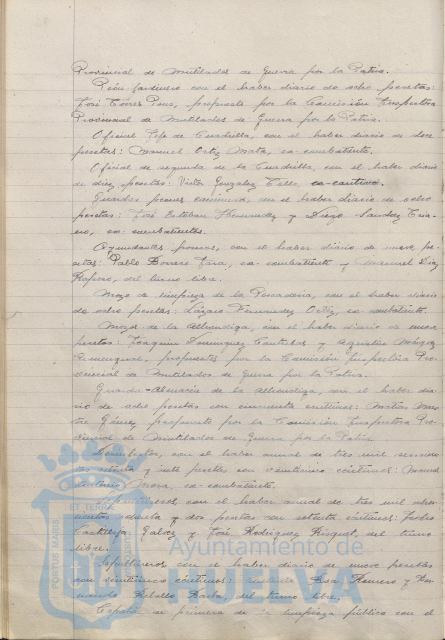 Provincial de Mutilados de Guerra por la Patria.
Peón jardinero con el haber diario de ocho pesetas:
José Pons, propuesto por la Comisión Inspectora
Provincial de Mutilados de Guerra por la Patria.
Oficial Jefe de Cuadrilla, con el haber diario de doce
pesetas: Manuel Ortiz Mata, ex-combatiente.
Oficial de segunda de la Cuadrilla, con el haber diario
de diez pesetas: Victor Gonzalez Tello, ex-cautivo.
Guardas, peones, con el haber diario de ocho
pesetas: José Esteban Hernandez y Diego Sanchez
ex-combatientes.
Ayudantes, con el haber diario de nueve pe-
setas: Pablo Borrero Jara, ex-combatiente y Manuel Diaz
del turno libre.
Mozo de limpieza de la Pescadería, con el haber diario
de ocho pesetas: Lázaro Fernandez Ortiz, ex-combatiente.
Mozos de la Alhondiga, con el haber diario de nueve
pesetas: Joaquin Dominguez y Agustin Márquez
propuestos por la Comisión Inspectora Pro-
vincial de Mutilados de Guerra por la Patria.
Guarda-Almacén de la Alhondiga, con el haber dia-
rio de ocho pesetas con cincuenta centimos: Matias
Gómez, propuesto por la Comisión Inspectora Pro-
vincial de Mutilados de Guerra por la Patria.
con el haber anual de tres mil seiscien-
tas y siete pesetas con veinticinco céntimos: Manuel
Mora, ex-combatiente.
con el haber anual de tres mil
y dos pesetas con setenta céntimos: Pedro
Galvez y José Rodriguez del turno
libre.
Sepultureros con el haber diario de nueve pesetas
con veinticinco céntimos: Romero y Fer-
nando Rebollo del turno libre.
Capataz de primera de la limpieza pública con el
PORTUS MARIS
ET TERRAE
Ayuntamiento de
HUELVA